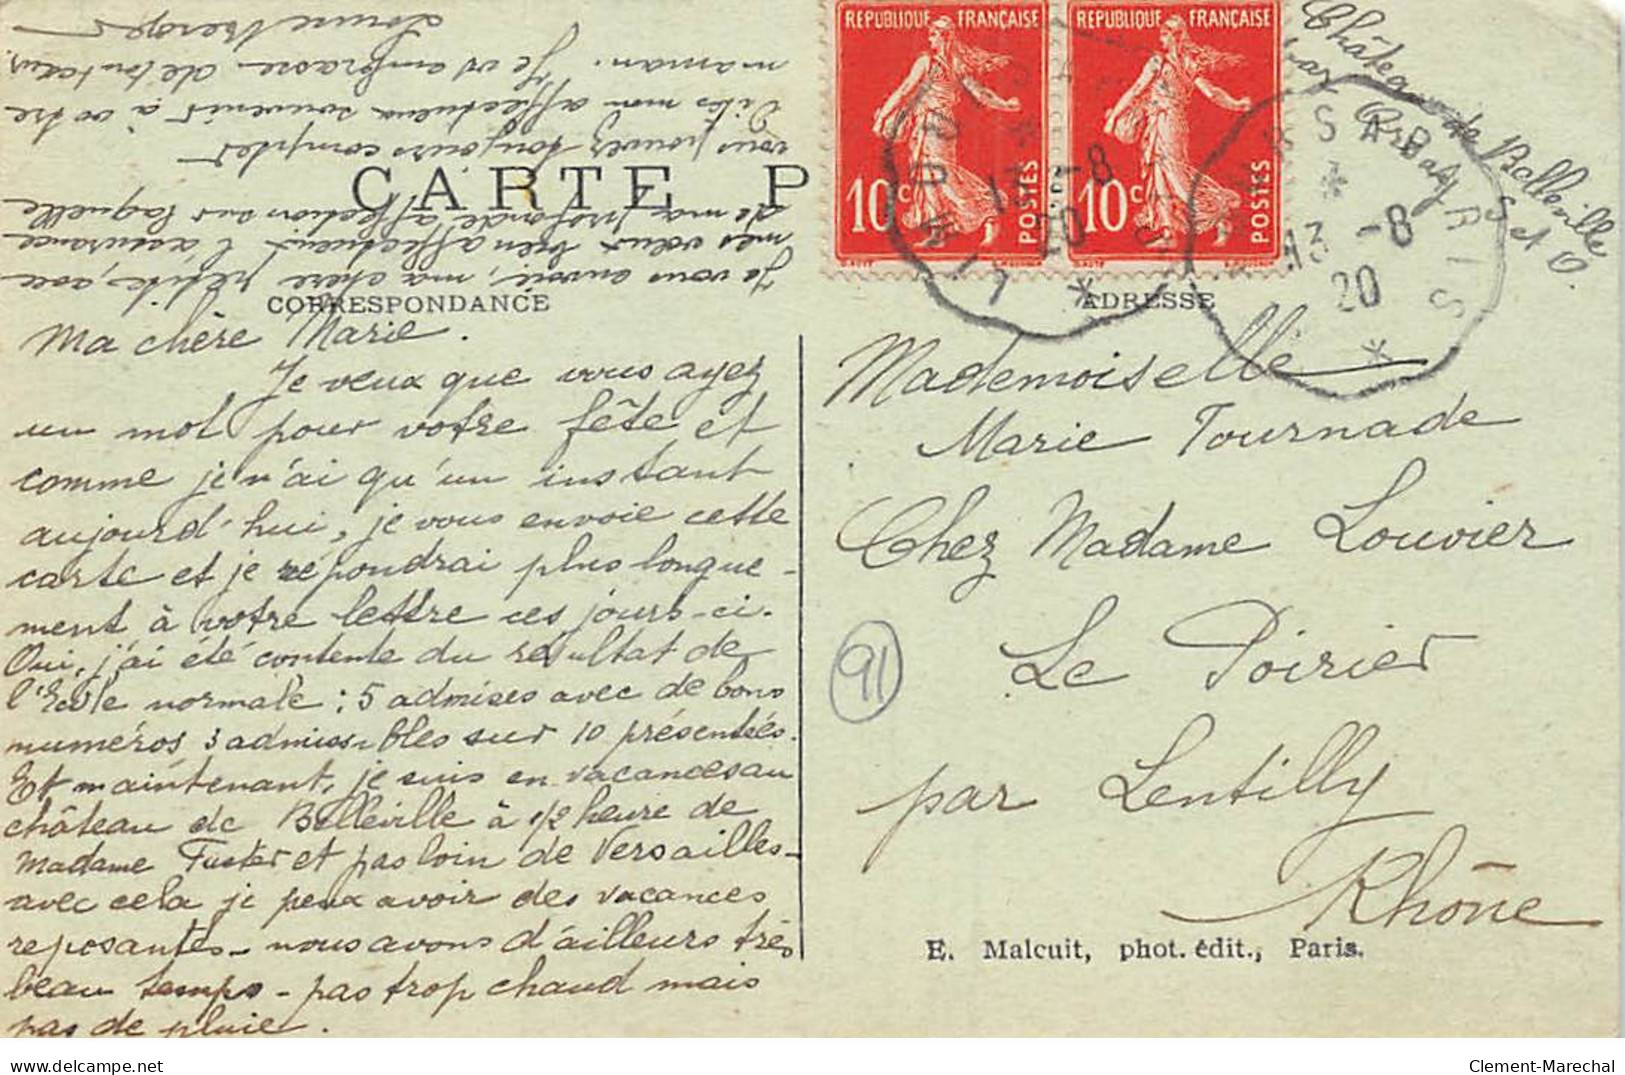 REPUBLIQUE FRANÇAISE
10c POSTES
REPUBLIQUE FRANÇAISE
10c POSTES
13 -8
20
13 -8
20
Château de Belleville
par
S et O.
CARTE P
CORRESPONDANCE
ADRESSE
Ma chère Marie.
Je veux que vous ayez
un mot pour votre fête et
comme je n'ai qu'un instant
aujourd'hui, je vous envoie cette
carte et je répondrai plus longue-
ment à votre lettre ces jours-ci.
Oui, j'ai été contente du résultat de
l'Ecole normale : 5 admises avec de bons
numéros 3 admissibles sur 10 présentées.
Et maintenant, je suis en vacances au
château de Belleville à 1/2 heure de
Madame Fuster et pas loin de Versailles-
avec cela je peux avoir des vacances
reposantes - nous avons d'ailleurs très
beau temps - pas trop chaud mais
pas de pluie.
Je vous envoie, ma chère petite, avec
mes vœux bien affectueux l'assurance
de ma profonde affection sur laquelle
vous pouvez toujours compter
Dites mon affectueux souvenir à votre
maman. Je vs embrasse de tout cœur.
Mademoiselle
Marie Tournade
Chez Madame Louvier
Le Poirier
par Lentilly
Rhône
91
E. Malcuit, phot. édit., Paris.
www.delcampe.net
Clement-Marechal